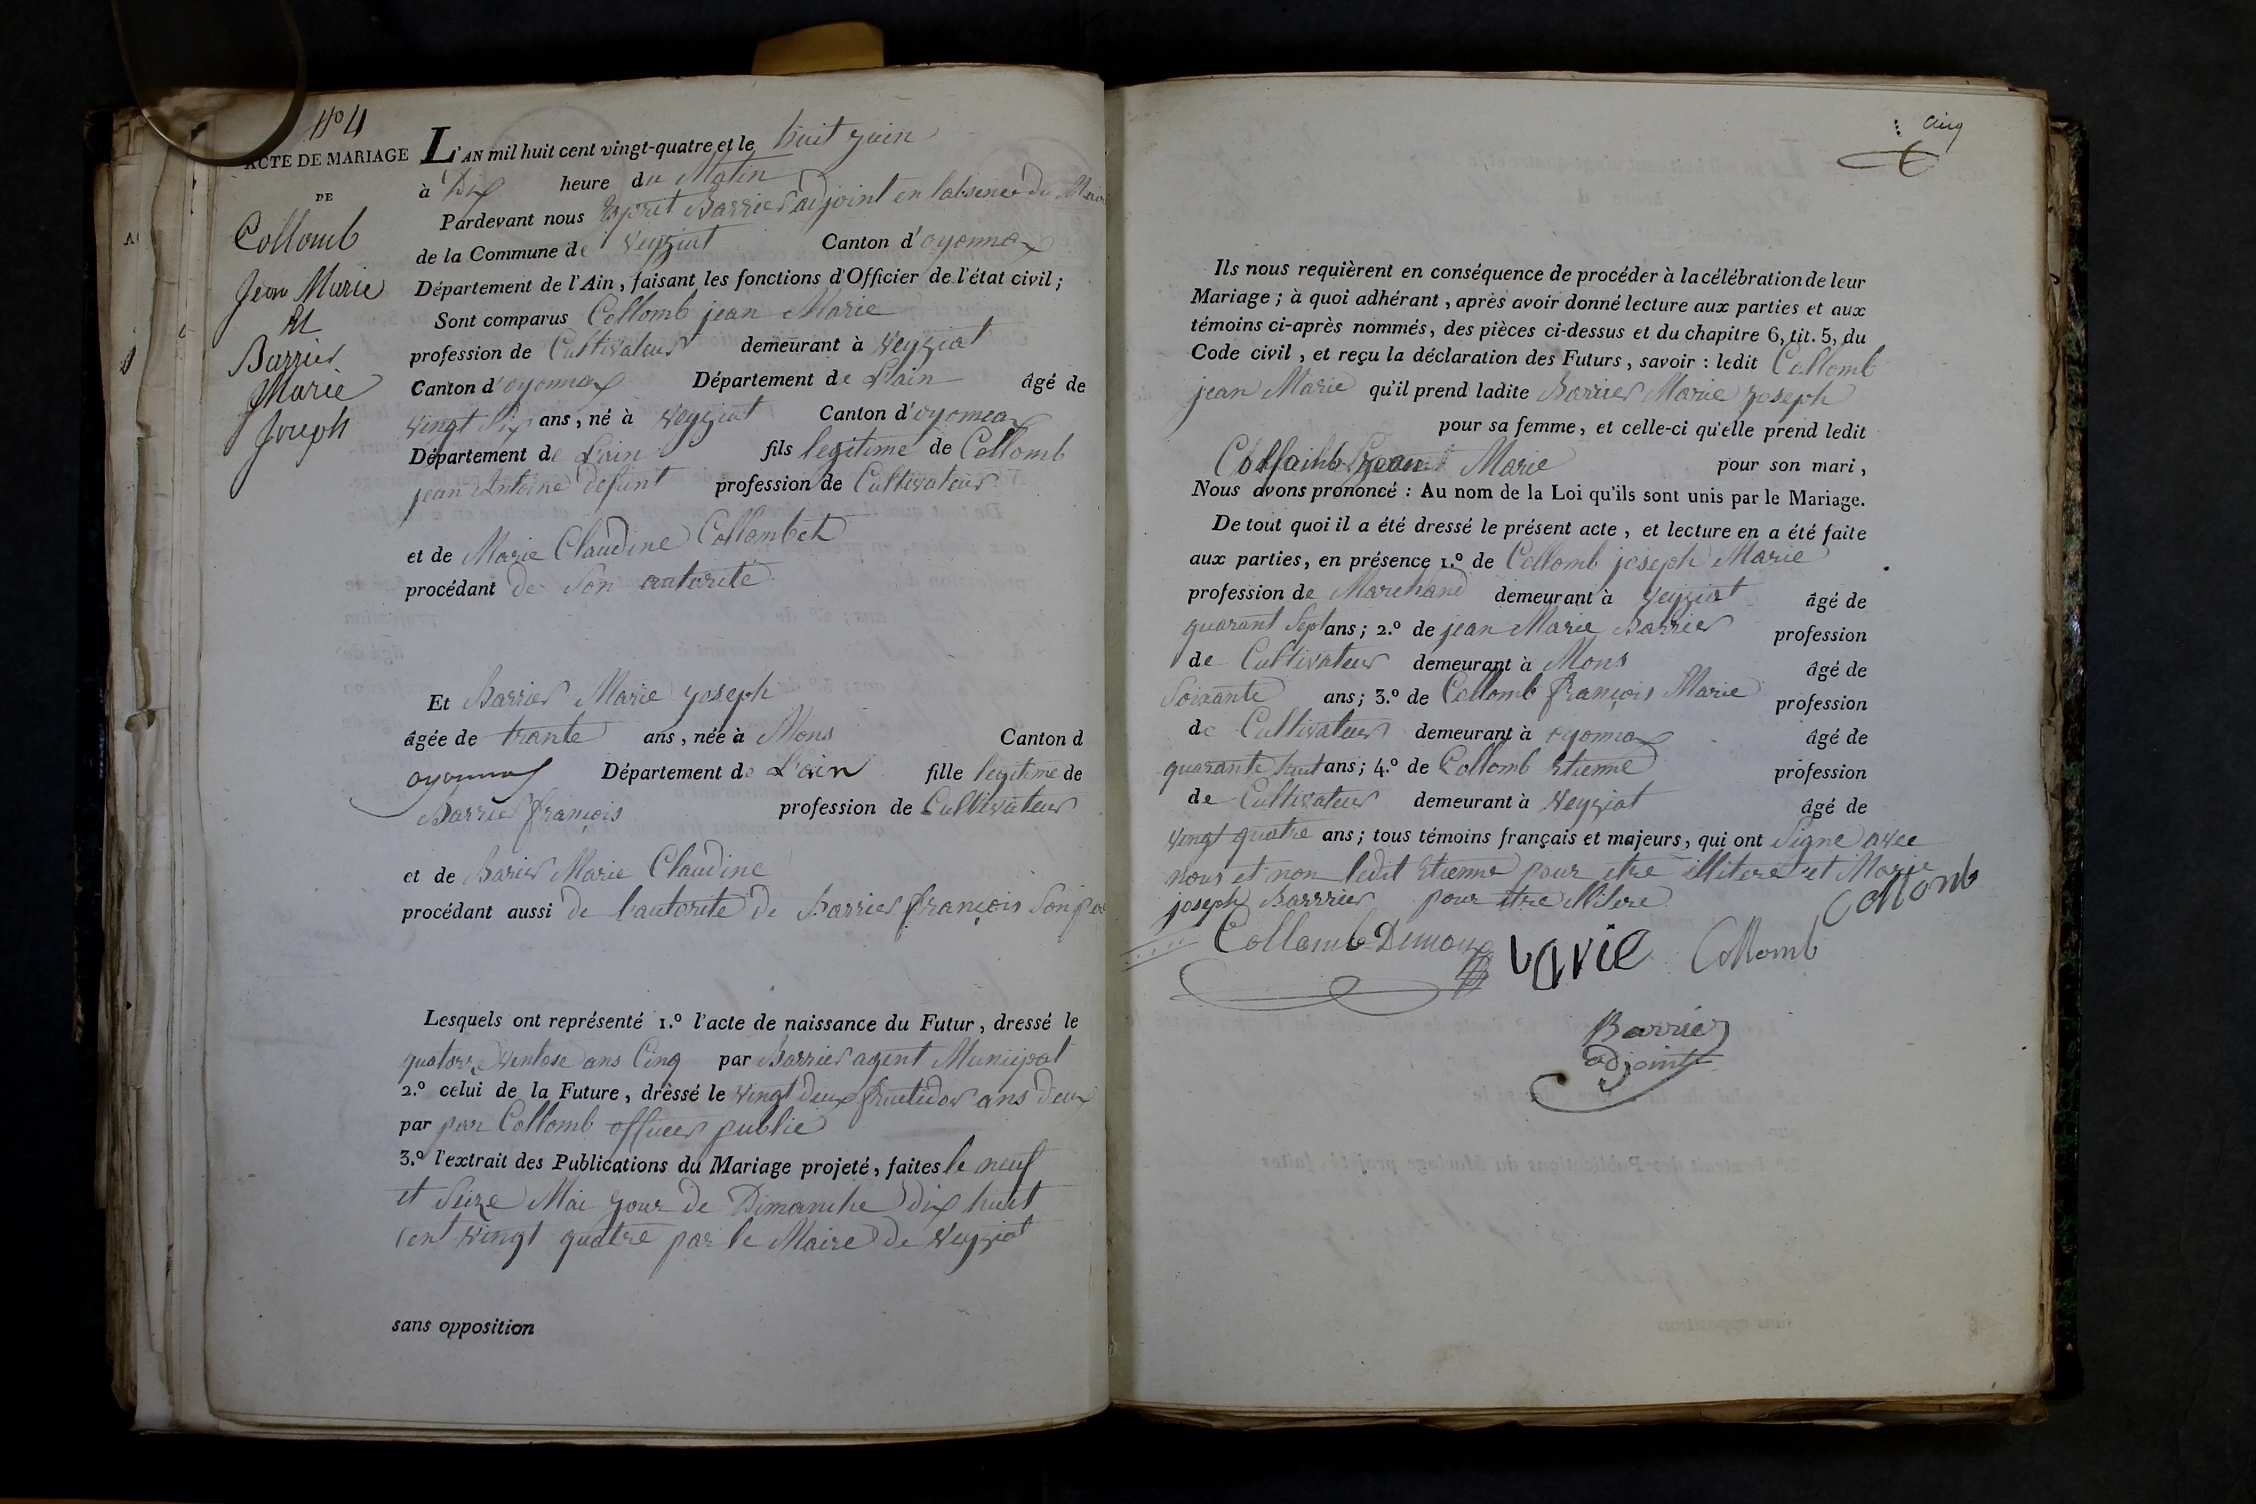 N° 4
ACTE DE MARIAGE
DE
Collomb
Jean Marie
Et
Barrier
Marie
Joseph
L'AN mil huit cent vingt-quatre et le huit juin
à Dix heure du Matin
Pardevant nous Esprit Barrier adjoint en labsence du Maire
de la Commune de Veyziat Canton d'oyonnax
Département de l'Ain, faisant les fonctions d'Officier de l'état civil;
Sont comparus Collomb jean Marie
profession de Cultivateur demeurant à Veyziat
Canton d'oyonnax Département de L'ain âgé de
vingt Six ans, né à Veyziat Canton d'oyonnax
Département de L'ain fils legitime de Collomb
jean Antoine defunt profession de Cultivateur
et de Marie Claudine Collombet
procédant de Son autorité
Et Barrier Marie joseph
âgée de trante ans, née à Mons Canton d
oyonnax Département de L'ain fille legitime de
Barrier françois profession de Cultivateur
et de Barier Marie Claudine
procédant aussi de l'autorité de Barrier françois Son
Lesquels ont représenté 1.° l'acte de naissance du Futur, dressé le
quatorze Ventose ans Cinq par Barrier agent Municipal
2.° celui de la Future, dressé le vingt deux fructidor ans deux
par par Collomb officier public
3.° l'extrait des Publications du Mariage projeté, faites le neuf
et Seize Mai jour de Dimanche dix huit
cent vingt quatre par le Maire de Veyziat
sans opposition
cinq
Ils nous requièrent en conséquence de procéder à la célébration de leur
Mariage; à quoi adhérant, après avoir donné lecture aux parties et aux
témoins ci-après nommés, des pièces ci-dessus et du chapitre 6, tit. 5, du
Code civil, et reçu la déclaration des Futurs, savoir: ledit Collomb
jean Marie qu'il prend ladite Barrier Marie joseph
pour sa femme, et celle-ci qu'elle prend ledit
Collomb jean Marie pour son mari,
Nous avons prononcé: Au nom de la Loi qu'ils sont unis par le Mariage.
De tout quoi il a été dressé le présent acte, et lecture en a été faite
aux parties, en présence 1.° de Collomb joseph Marie
profession de Marchand demeurant à Veyziat âgé de
quarant Sept ans; 2.° de jean Marie Barrier profession
de Cultivateur demeurant à Mons âgé de
Soixante ans; 3.° de Collomb françois Marie profession
de Cultivateur demeurant à oyonnax âgé de
quarante huit ans; 4.° de Collomb Etienne profession
de Cultivateur demeurant à Veyziat âgé de
vingt quatre ans; tous témoins français et majeurs, qui ont Signe avec
nous et non ledit Etienne pour etre illitere et Marie
joseph Barrrier pour etre illitere
Collomb
Collomb Collomb
Barrier
adjoint